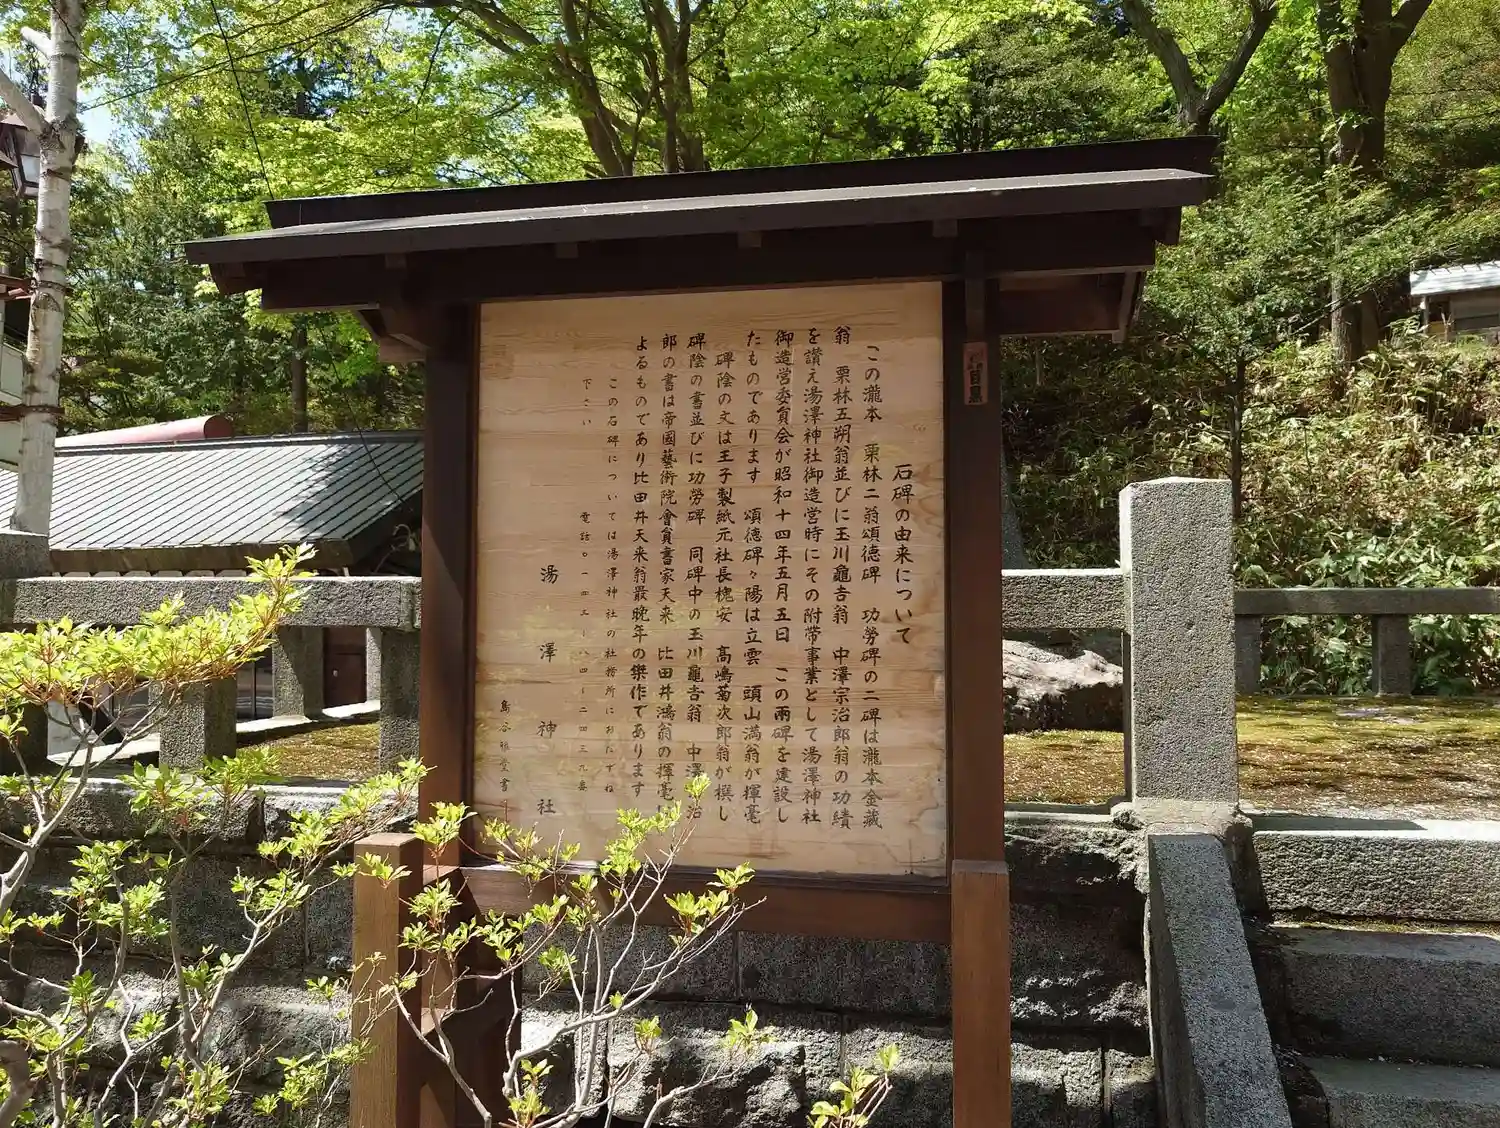 石碑の由来について
この瀧本 栗林二翁頌徳碑 功勞碑の二碑は瀧本金藏
翁 栗林五朔翁並びに玉川龜吉翁 中澤宗治郎翁の功績
を讃え湯澤神社御造営時にその附帯事業として湯澤神社
御造営委員会が昭和十四年五月五日 この兩碑を建設し
たものであります 頌徳碑々陽は立雲 頭山満翁が揮毫
碑陰の文は王子製紙元社長槐安 高嶋菊次郎翁が撰し
碑陰の書並びに功勞碑 同碑中の玉川龜吉翁 中澤 治
郎の書は帝國藝術院會員書家天来 比田井鴻翁の揮毫に
よるものであり比田井天来翁最晩年の樂作であります
この石碑については湯澤神社の社務所におたずね
下さい 電話〇一四三－八四－二四三九番
湯澤神社
島谷 堂書
百黒